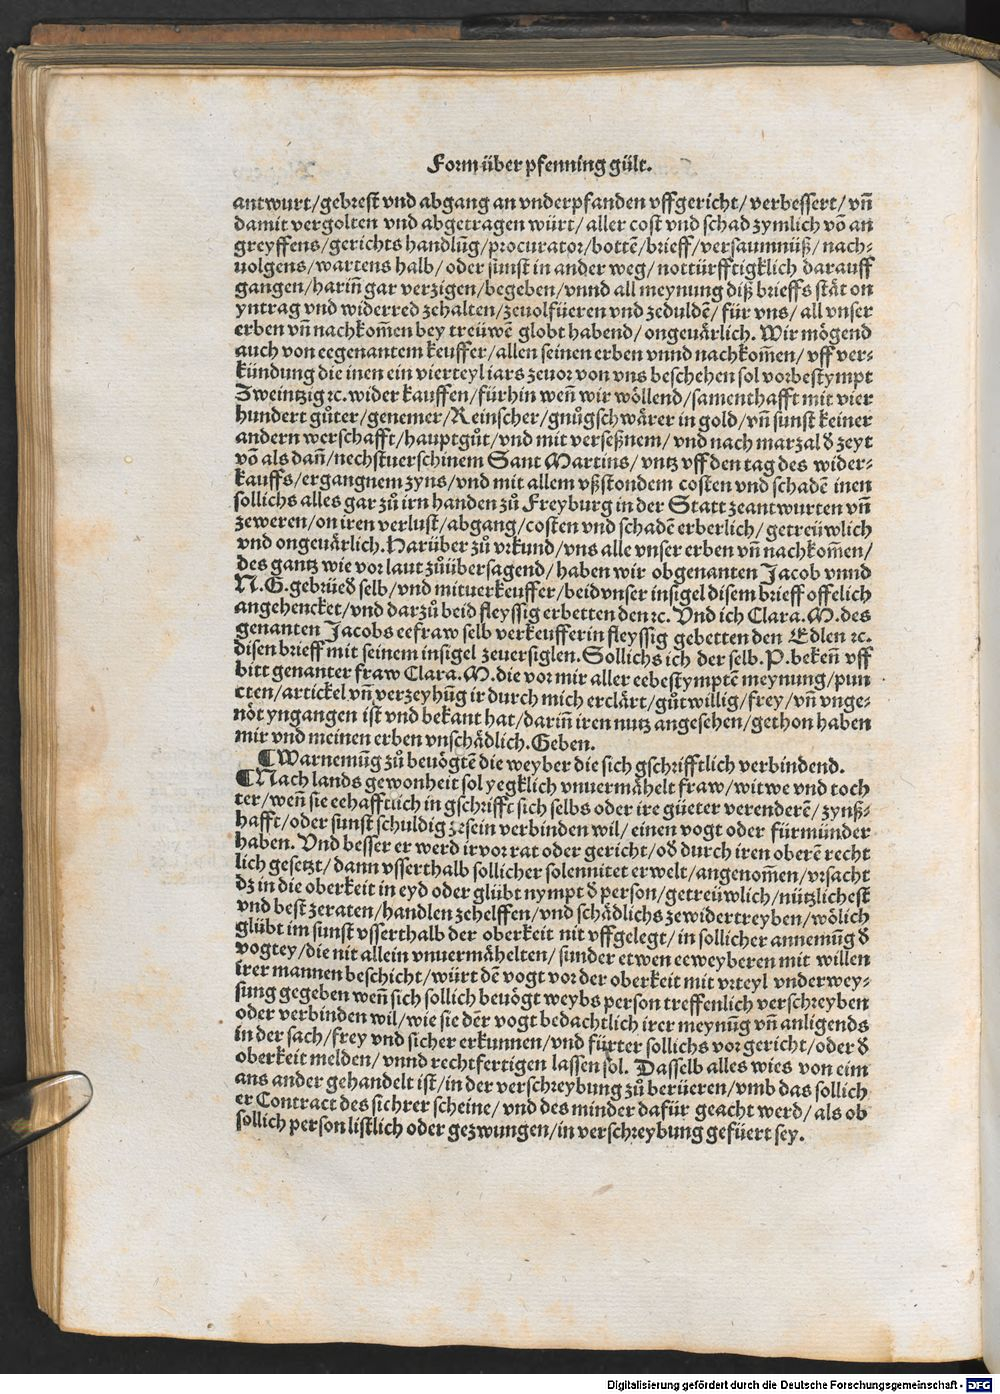 Form über pfenning gült.
antwurt/gebrest vnd abgang an vnderpfanden vffgericht/verbessert/vñ
damit vergolten vnd abgetragen würt/aller cost vnd schad zymlich võ an
greyffens/gerichts handlũg/procurator/bottẽ/brieff/versaumnüß/nach⸗
uolgens/wartens halb/oder sunst in ander weg/nottürfftigklich darauff
gangen/hariñ gar verzigen/begeben/vnnd all meynung diß brieffs stät on
yntrag vnd widerred zehalten/zeuolfüeren vnd zeduldẽ/für vns/all vnser
erben vñ nachkom̃en bey treüwẽ globt habend/ongeuärlich. Wir mögend
auch von eegenantem keuffer/allen seinen erben vnnd nachkom̃en/vff ver⸗
kündung die inen ein vierteyl iars zeuor von vns beschehen sol vorbestympt
Zweintzig ꝛc. wider kauffen/fürhin weñ wir wöllend/samenthafft mit vier
hundert gůter/genemer/Reinscher/gnůgschwärer in gold/vñ sunst keiner
andern werschafft/hauptgůt/vnd mit verseßnem/vnd nach marzal ð zeyt
võ als dañ/nechstuerschinem Sant Martins/vntz vff den tag des wider⸗
kauffs/ergangnem zyns/vnd mit allem vßstondem costen vnd schadẽ inen
sollichs alles gar zů irn handen zů Freyburg in der Statt zeantwurten vñ
zeweren/on iren verlust/abgang/costen vnd schadẽ erberlich/getreüwlich
vnd ongeuärlich. Harüber zů vrkund/vns alle vnser erben vñ nachkom̃en/
des gantz wie vor laut zůübersagend/haben wir obgenanten Jacob vnnd
N.G. gebrüeð selb/vnd mituerkeuffer/beid vnser insigel disem brieff offelich
angehencket/vnd darzů beid fleyssig erbetten den ꝛc. Vnd ich Clara.M.des
genanten Jacobs eefraw selb verkeufferin fleyssig gebetten den Edlen ꝛc.
disen brieff mit seinem insigel zeuersiglen. Sollichs ich der selb.P.bekeñ vff
bitt genanter fraw Clara.M.die vor mir aller eebestymptẽ meynung/pun
cten/artickel vñ verzeyhũg ir durch mich erclärt/gůtwillig/frey/vñ vnge⸗
nöt yngangen ist vnd bekant hat/dariñ iren nutz angesehen/gethon haben
mir vnd meinen erben vnschädlich. Geben.
¶Warnemũg zů beuögtẽ die weyber die sich gschrifftlich verbindend.
¶Nach lands gewonheit sol yegklich vnuermähelt fraw/witwe vnd toch
ter/weñ sie eehafftlich in gschrifft sich selbs oder ire güeter verenderẽ/zynß⸗
hafft/oder sunst schuldig ze sein verbinden wil/einen vogt oder fürmünder
haben. Vnd besser er werd ir vor rat oder gericht/oð durch iren oberẽ recht
lich gesetzt/dann vsserthalb sollicher solennitet erwelt/angenom̃en/vrsacht
dz in die oberkeit in eyd oder glübt nympt ð person/getreüwlich/nützlichest
vnd best zeraten/handlen zehelffen/vnd schädlichs zewidertreyben/wölich
glübt im sunst vsserthalb der oberkeit nit vffgelegt/in sollicher annemũg ð
vogtey/die nit allein vnuermähelten/sunder etwen eeweyberen mit willen
irer mannen beschicht/würt dẽ vogt vor der oberkeit mit vrteyl vnderwey⸗
sung gegeben weñ sich sollich beuögt weybs person treffenlich verschreyben
oder verbinden wil/wie sie dẽr vogt bedachtlich irer meynũg vñ anligends
in der sach/frey vnd sicher erkunnen/vnd fürter sollichs vor gericht/oder ð
oberkeit melden/vnnd rechtfertigen lassen sol. Dasselb alles wies von eim
ans ander gehandelt ist/in der verschreybung zů berüeren/vmb das sollich
er Contract des sichrer scheine/vnd des minder dafür geacht werd/als ob
sollich person listlich oder gezwungen/in verschreybung gefüert sey.
Digitalisierung gefördert durch die Deutsche Forschungsgemeinschaft - DFG